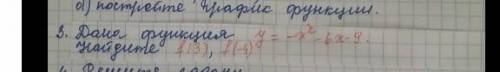 а) постройте график функции.
3. Дана функция y = -x² - 6x - 9.
Найдите f(3), f(-4)